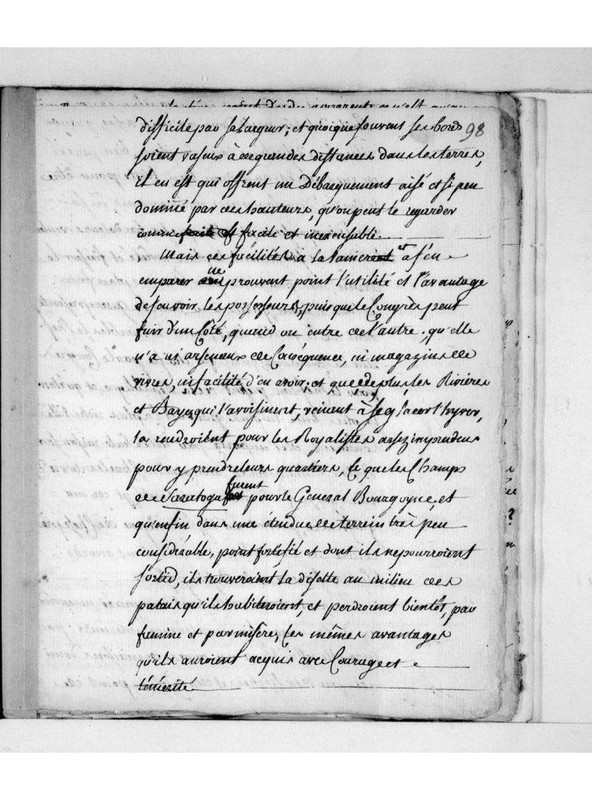 98
difficile par sa largeur; et quoique souvent ses bords
soient vaseux à de grandes distances dans les terres,
il en est qui offrent un Débarquement aisé et si peu
dominé par des hauteurs, qu'on peut le regarder
comme facile et immanquable.
Mais ces facilités à la tourner et à s'en
emparer ne prouvent point l'utilité et l'avantage
de s'en voir les possesseurs, puisque le Congrès peut
fuir d'un Côté, quand on entre de l'autre. qu'elle
n'a ni arsenaux de Conséquence, ni magazins de
vivres, ni facilité d'en avoir: et que de plus, les Rivières
et Bayes qui l'avoisinent, venant à se glacer l'hyver,
la rendroient pour les Royalistes assez imprudens
pour y prendre leurs quartiers, Ce que les Champs
de Saratoga furent pour le Général Bourgoyne, et
qu'enfin dans une étendue de terrein très peu
considérable, point fortifié et dont ils ne pourroient
sortir, ils trouveroient la disette au milieu des
palais qu'ils habiteroient, et perdroient bientôt, par
famine et par misère, Ces mêmes avantages
qu'ils auroient acquis avec Courage et
témérité